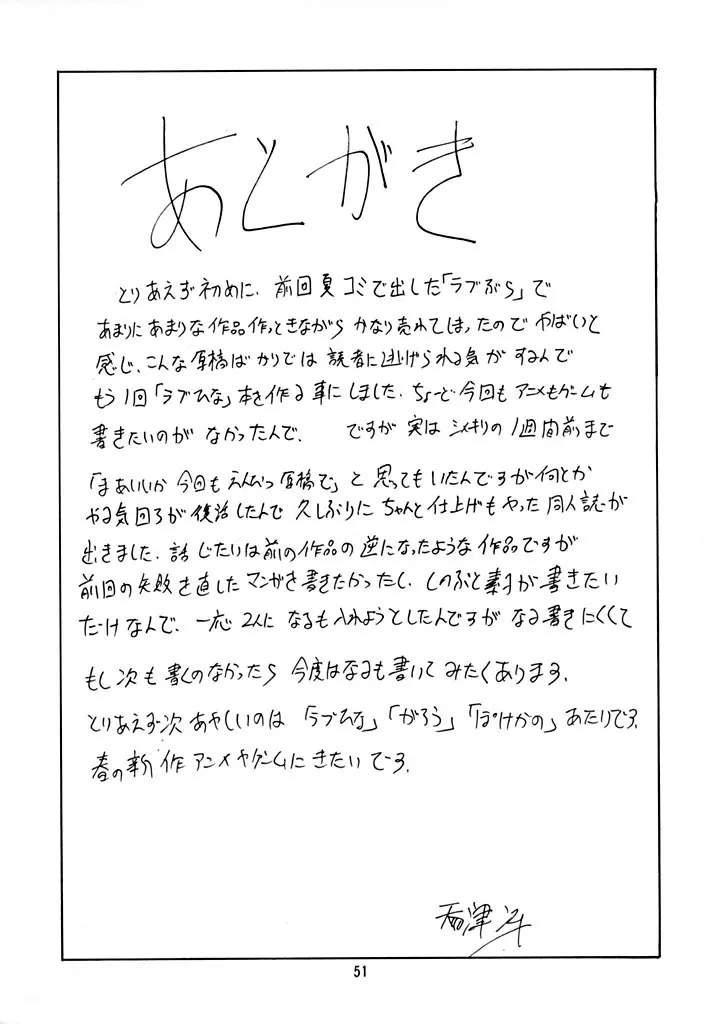 あとがき
とりあえず初めに、前回夏コミで出した「ラブぷら」で
あまりにあまりな作品作っときながら かなり売れてしまったので やばいと
感じ、こんな原稿ばかりでは 読者に逃げられる気がするんで
もう1回「ラブひな」本を作る事にしました。ちょーど今回もアニメもゲームも
書きたいのが なかったんで、 ですが 実は シメキリの1週間前まで
「まあいいか 今回も えんぴつ原稿で」と思ってもいたんですが何とか
やる気回ろが復活したんで 久しぶりに ちゃんと仕上げもやった 同人誌が
出きました。話じたいは前の作品の逆になったような作品ですが
前回の失敗を直したマンガを書きたかったし、しのぶと素子が書きたい
だけなんで、一応2人に なるも入れようとしたんですが なる書きにくくて
もし次も書くのなかったら 今度はなるも書いてみたくあります。
とりあえず次あやしいのは「ラブひな」「がろう」「ぽけかの」あたりです。
春の新作アニメやゲームにきたいです。
51